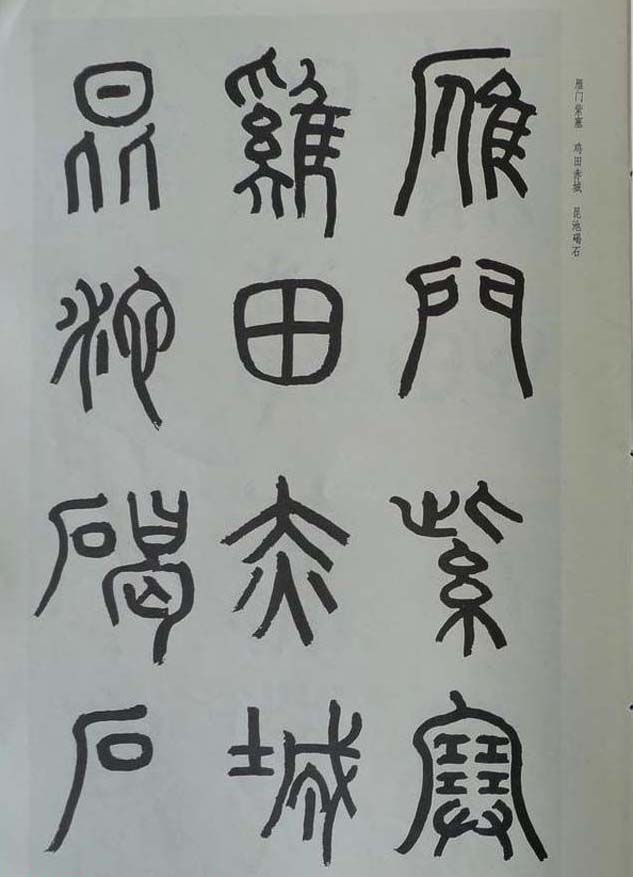 雁門紫塞
雞田赤城
昆池碣石
雁门紫塞 鸡田赤城 昆池碣石